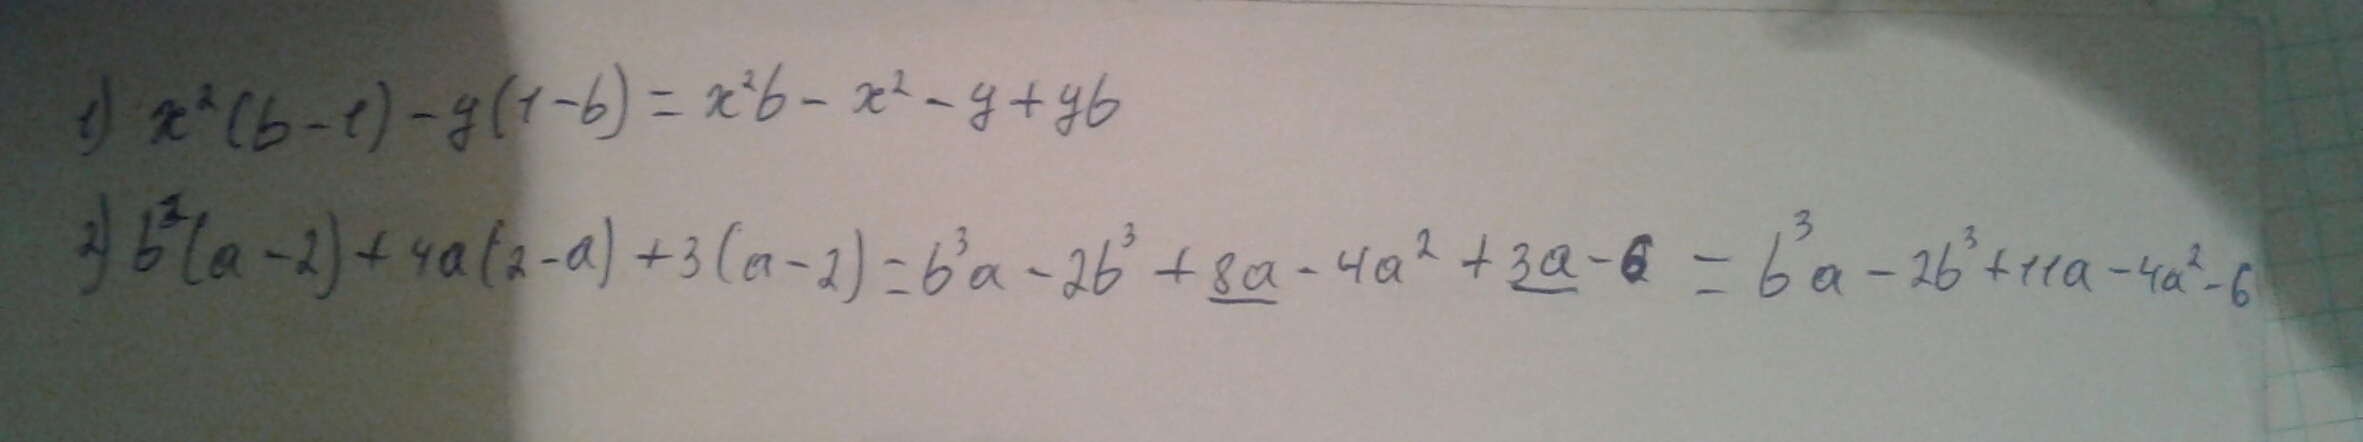 1) x²(b-1)-y(1-b)=x²b-x²-y+yb
2) b³(a-2)+4a(2-a)+3(a-2)=b³a-2b³+8a-4a²+3a-6=b³a-2b³+11a-4a²-6